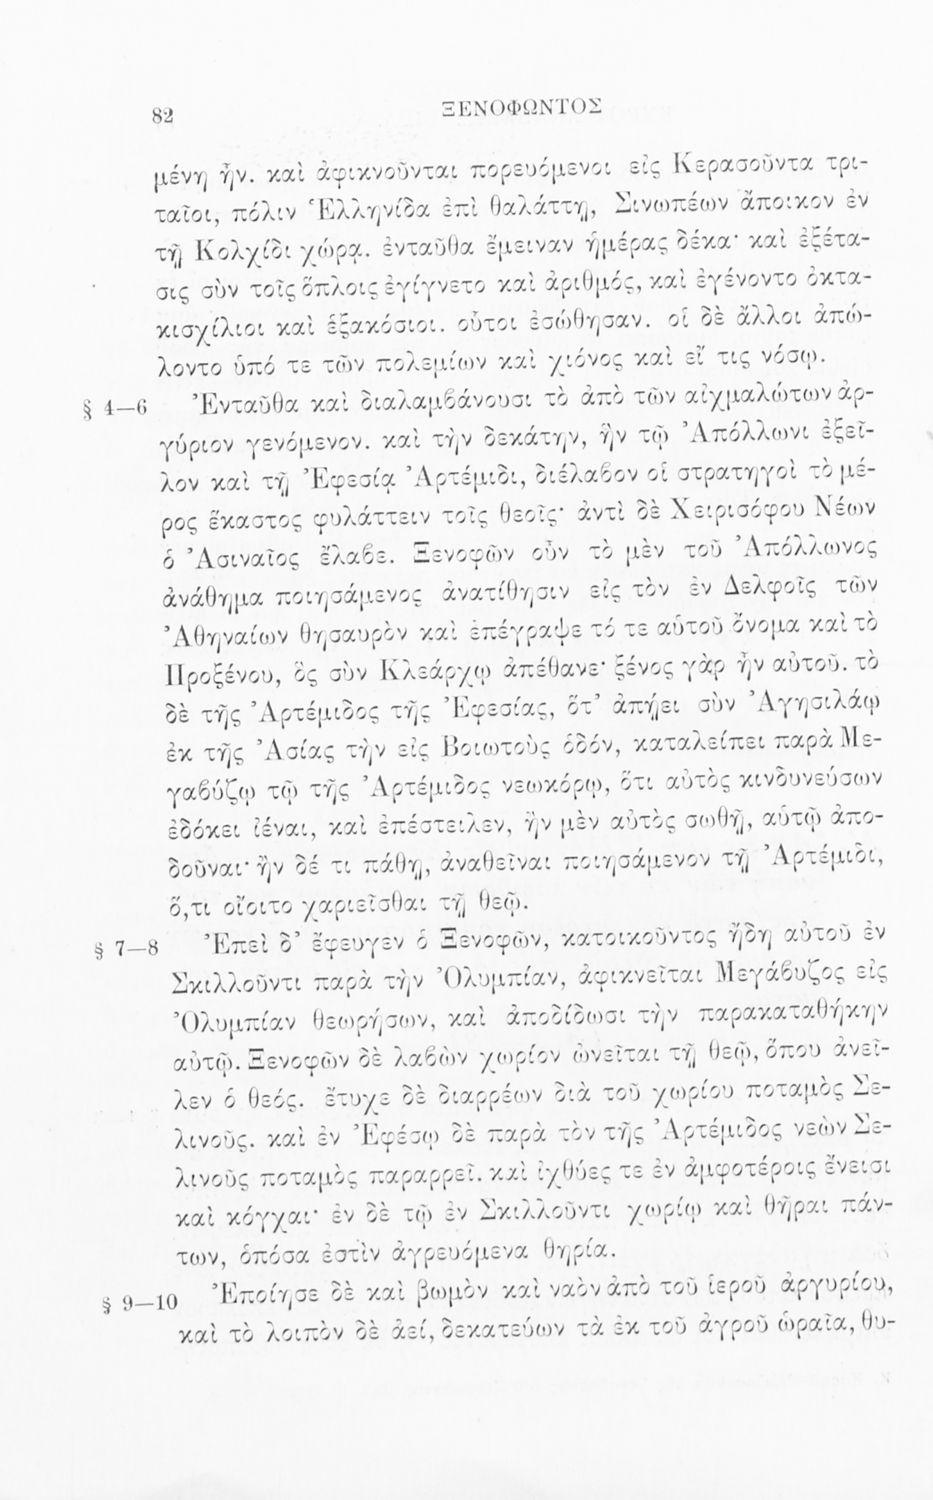 82
ΞΕΝΟΦΩΝΤΟΣ
μένη ἦν. καὶ ἀφικνοῦνται πορευόμενοι εἰς Κερασοῦντα τρι-
ταῖοι, πόλιν Ἑλληνίδα ἐπὶ θαλάττῃ, Σινωπέων ἄποικον ἐν
τῇ Κολχίδι χώρᾳ. ἐνταῦθα ἔμειναν ἡμέρας δέκα· καὶ ἐξέτα-
σις σὺν τοῖς ὅπλοις ἐγίγνετο καὶ ἀριθμός, καὶ ἐγένοντο ὀκτα-
κισχίλιοι καὶ ἑξακόσιοι. οὗτοι ἐσώθησαν. οἱ δὲ ἄλλοι ἀπώ-
λοντο ὑπό τε τῶν πολεμίων καὶ χιόνος καὶ εἴ τις νόσῳ.
§ 4—6 Ἐνταῦθα καὶ διαλαμϐάνουσι τὸ ἀπὸ τῶν αἰχμαλώτων ἀρ-
γύριον γενόμενον. καὶ τὴν δεκάτην, ἣν τῷ Ἀπόλλωνι ἐξεῖ-
λον καὶ τῇ Ἐφεσίᾳ Ἀρτέμιδι, διέλαϐον οἱ στρατηγοὶ τὸ μέ-
ρος ἕκαστος φυλάττειν τοῖς θεοῖς· ἀντὶ δὲ Χειρισόφου Νέων
ὁ Ἀσιναῖος ἔλαϐε. Ξενοφῶν οὖν τὸ μὲν τοῦ Ἀπόλλωνος
ἀνάθημα ποιησάμενος ἀνατίθησιν εἰς τὸν ἐν Δελφοῖς τῶν
Ἀθηναίων θησαυρὸν καὶ ἐπέγραψε τό τε αὑτοῦ ὄνομα καὶ τὸ
Προξένου, ὃς σὺν Κλεάρχῳ ἀπέθανε· ξένος γὰρ ἦν αὐτοῦ. τὸ
δὲ τῆς Ἀρτέμιδος τῆς Ἐφεσίας, ὅτ’ ἀπῄει σὺν Ἀγησιλάῳ
ἐκ τῆς Ἀσίας τὴν εἰς Βοιωτοὺς ὁδόν, καταλείπει παρὰ Με-
γαϐύζῳ τῷ τῆς Ἀρτέμιδος νεωκόρῳ, ὅτι αὐτὸς κινδυνεύσων
ἐδόκει ἰέναι, καὶ ἐπέστειλεν, ἢν μὲν αὐτὸς σωθῇ, αὑτῷ ἀπο-
δοῦναι· ἢν δέ τι πάθῃ, ἀναθεῖναι ποιησάμενον τῇ Ἀρτέμιδι,
ὅ,τι οἴοιτο χαριεῖσθαι τῇ θεῷ.
§ 7—8 Ἐπεὶ δ’ ἔφευγεν ὁ Ξενοφῶν, κατοικοῦντος ἤδη αὐτοῦ ἐν
Σκιλλοῦντι παρὰ τὴν Ὀλυμπίαν, ἀφικνεῖται Μεγάϐυζος εἰς
Ὀλυμπίαν θεωρήσων, καὶ ἀποδίδωσι τὴν παρακαταθήκην
αὐτῷ. Ξενοφῶν δὲ λαϐὼν χωρίον ὠνεῖται τῇ θεῷ, ὅπου ἀνεῖ-
λεν ὁ θεός. ἔτυχε δὲ διαρρέων διὰ τοῦ χωρίου ποταμὸς Σε-
λινοῦς. καὶ ἐν Ἐφέσῳ δὲ παρὰ τὸν τῆς Ἀρτέμιδος νεὼν Σε-
λινοῦς ποταμὸς παραρρεῖ. καὶ ἰχθύες τε ἐν ἀμφοτέροις ἔνεισι
καὶ κόγχαι· ἐν δὲ τῷ ἐν Σκιλλοῦντι χωρίῳ καὶ θῆραι πάν-
των, ὁπόσα ἐστὶν ἀγρευόμενα θηρία.
§ 9—10 Ἐποίησε δὲ καὶ βωμὸν καὶ ναὸν ἀπὸ τοῦ ἱεροῦ ἀργυρίου,
καὶ τὸ λοιπὸν δὲ ἀεί, δεκατεύων τὰ ἐκ τοῦ ἀγροῦ ὡραῖα, θυ-